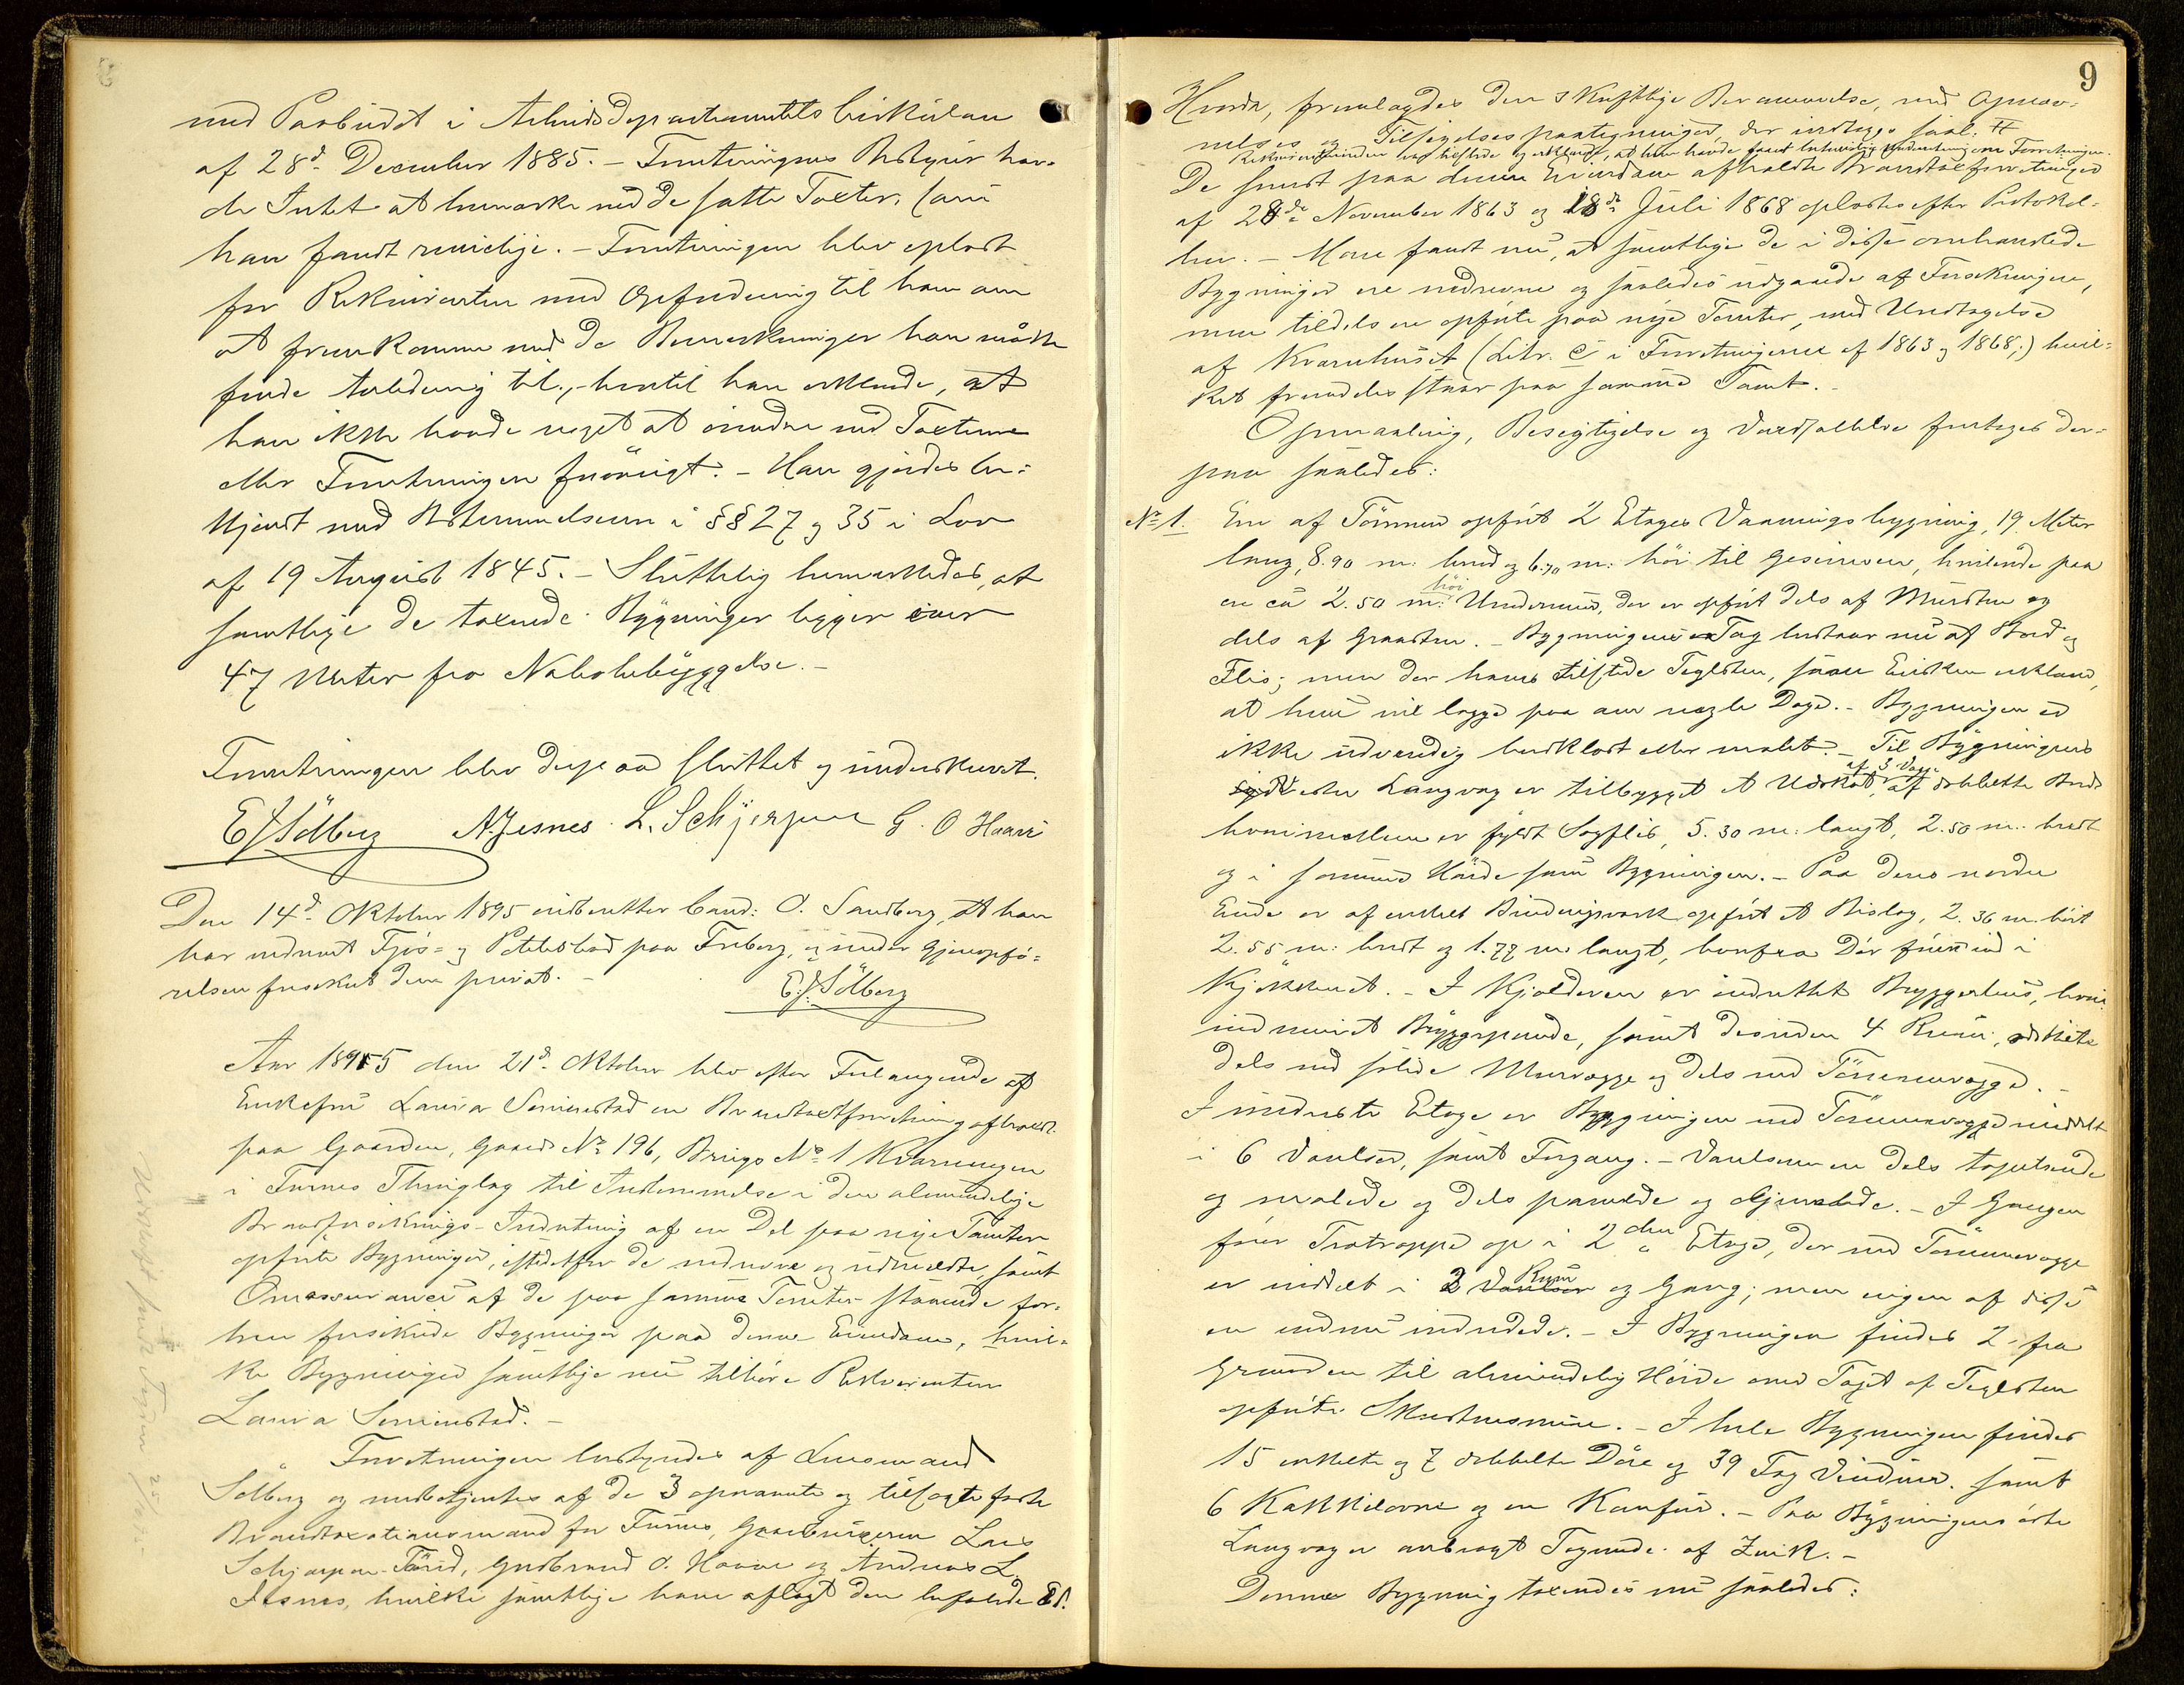 med Paabudet i Arbeidsdepartementets Cirkulære
af 28d December 1885. – Forretningens Bestyrer hav-
de Intet at bemærke ved de satte Taxter, som
han fandt rimelige. – Forretningen blev oplæst
for Rekvirenten med Opfordring til ham om
at fremkomme med de Bemærkninger han maatte
finde Anledning til, – hertil han erklærede, at
han ikke havde noget at erindre ved Taxterne
eller Forretningen forøvrigt. – Han gjordes be-
kjendt med Bestemmelserne i §§ 27 og 35 i Lov
af 19 August 1845. – Sluttelig bemærkedes, at
samtlige de taxerede Bygninger ligger over
47 Meter fra Nabobebyggelse. –
Forretningen blev derpaa sluttet og underskrevet.
E Sölberg N. Jesnes. L. Schjerpen G. O Haave
Den 14d Oktober 1895 indberetter Cand: O. Sandberg, at han
har nedrevet Fjøs- og Potetesbod paa Friberg, og under Gjenopfø-
relsen forsikret dem privat. –
E. Sölberg
Aar 1895 den 21d Oktober blev efter Forlangende af
Enkefru Laura Semmestad en Brandtaxtforretning afholdt
paa Gaarden, Gaards No 196, Brugs No 1 Kværningen
i Furnes Thinglag til Indtemmelse i den almindelige
Brandforsikrings-Indretning af en Del paa nye Tomter
opførte Bygninger, istedetfor de nedrevne og udmeldte, samt
Omassurance af de paa samme Tomter staaende for-
hen forsikrede Bygninger paa denne Eiendom, hvil-
ke Bygninger samtlige nu tilhøre Rekvirenten
Laura Semmestad. –
Forretningen bestyredes af Lensmand
Sölberg og medbetjentes af de 3 opnævnte og tilsagte faste
Brandtaxationsmænd for Furnes, Gaardbrugerne Lars
Schjerpen-Fjørd, Gudbrand O. Haave og Andreas L.
Jesnes, hvilke samtlige have aflagt den befalede Ed.
9
Herpaa, fremlagdes den skriftlige Berammelse, med Opnæv-
nelses og Tilsigelses paategninger, der indtages saal: #
Rekvirentinden var tilstede og erklærede, at hun havde faaet betimelig Underretning om Forretningen.
De sidst paa denne Eiendom afholdte Brandtaxtforretninger
af 28de November 1863 og 18de Juli 1868 oplæstes efter Protokol-
len. – Man fandt nu, at samtlige de i disse omhandlede
Bygninger ere nedrevne og saaledes udgaaede af Forsikringen,
men tildels ere opførte paa nye Tomter, med Undtagelse
af Kvernhuset (Litr. C i Forretningerne af 1863 og 1868,) hvil-
ket fremdeles staar paa samme Tomt. –
Opmaaling, Besigtigelse og Værdsættelse foretages der-
paa saaledes:
No 1. En af Tömmer opført 2 Etages Vaaningsbygning, 19 Meter
lang, 8.90 m. bred og 6.70 m: höi til Gesimsen, hvilende paa
en ca 2.50 m. höi Undermur, der er opført dels af Mursten og
dels af Graasten. – Bygningens Tag bestaar nu af Bord og
Flis; men der haves tilstede Teglsten, som Enken erklærer,
at hun vil lægge paa om nogle Dage. – Bygningen er
ikke udvendig bordklædt eller malet. – Til Bygningens
vestre Langvæg er tilbygget et Udskot, af 3 Vægge af dobbelte Bord
hvorimellem er fyldt Sagflis, 5.30 m. langt, 2.50 m. bredt
og i samme Høide som Bygningen. – Paa dens nordre
Ende er af enkelt Bindingsværk opført et Bislag, 2.36 m. höit
2.55 m. bredt og 1.77 m. langt, hvorfra Dör förer ind i
Kjøkkenet. – I Kjælderen er indrettet Bryggerhus, hvori
indmuret Bryggepande, samt desuden 4 Rum, adskilte
dels ved solide Murvægge og dels ved Tömmervægge. –
I nederste Etage er Bygningen med Tømmervægge inddelt
i 6 Værelser, samt Forgang. – Værelserne ere dels tapetserede
og malede og dels panelede og oljemalede. – I Gangen
förer Trætrappe op i 2den Etage, der ved Tömmervægge
er inddelt i 2 Rum og Gang; men ingen af disse
er endnu indredede. – I Bygningen findes 2 fra
Grunden til almindelig Höide over Taget af Teglsten
opførte Skorstenspiber. – I hele Bygningen findes
15 enkelte og 7 dobbelte Döre og 39 Fag Vinduer. samt
6 Kakkelovne og en Komfur. – Paa Bygningens østre
Langvæg er anbragt Tagrende af Zink. –
Denne Bygning taxeredes nu saaledes: